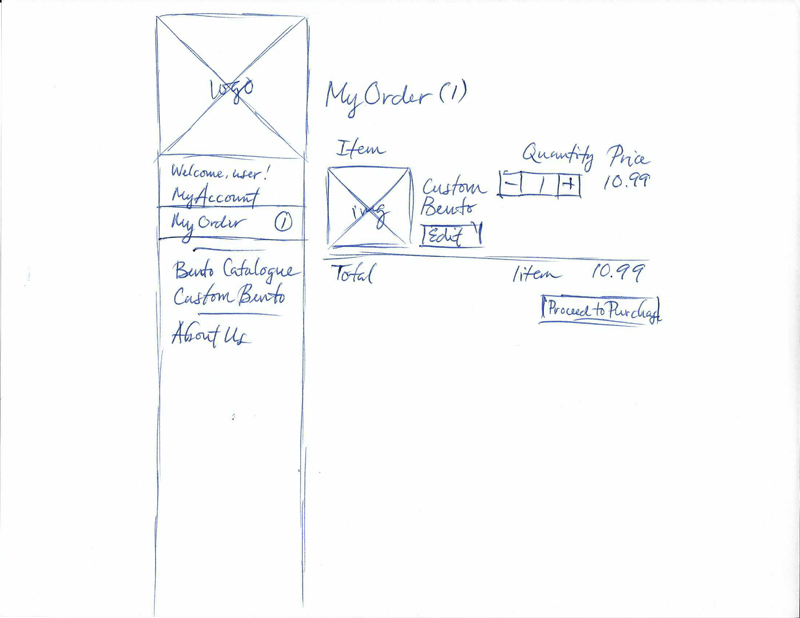 logo
Welcome, user!
My Account
My Order 1
Bento Catalogue
Custom Bento
About Us
My Order (1)
Item Quantity Price
img
Custom
Bento
Edit
- 1 + 10.99
Total 1 item 10.99
Proceed to Purchase